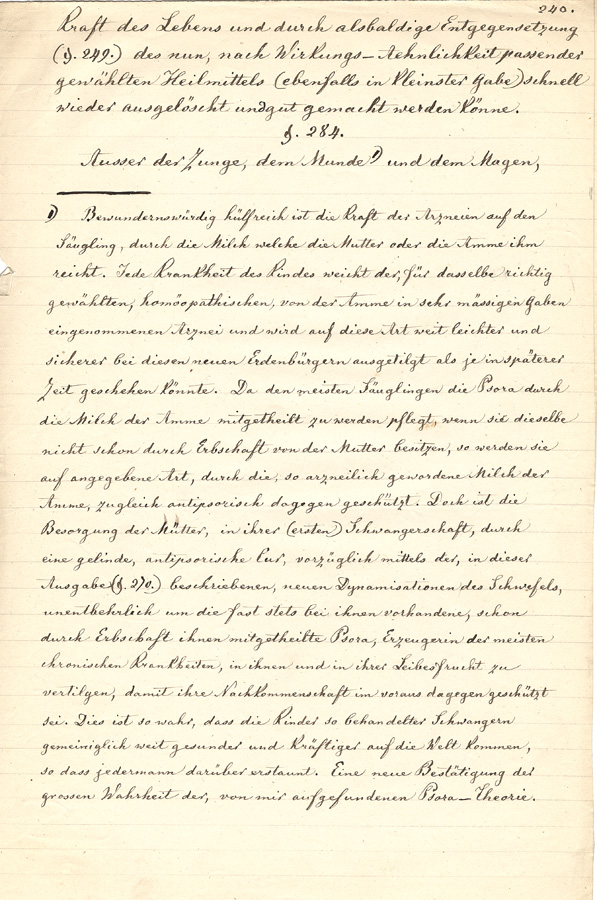 240.
Kraft des Lebens und durch alsbaldige Entgegensetzung
(§. 249.) des nun, nach Wirkungs-Aehnlichkeit passender
gewählten Heilmittels (ebenfalls in kleinster Gabe) schnell
wieder ausgelöscht und gut gemacht werden könne.
§. 284.
Ausser der Zunge, dem Munde 1) und dem Magen,
1) Bewundernswürdig hülfreich ist die Kraft der Arzneien auf den
Säugling, durch die Milch welche die Mutter oder die Amme ihm
reicht. Jede Krankheit des Kindes weicht der, für dasselbe richtig
gewählten, homöopathischen, von der Amme in sehr mässigen Gaben
eingenommenen Arznei und wird auf diese Art weit leichter und
sicherer bei diesen neuen Erdenbürgern ausgetilgt als je in späterer
Zeit geschehen könnte. Da den meisten Säuglingen die Psora durch
die Milch der Amme mitgetheilt zu werden pflegt, wenn sie dieselbe
nicht schon durch Erbschaft von der Mutter besitzen, so werden sie
auf angegebene Art, durch die, so arzneilich gewordene Milch der
Amme, zugleich antipsorisch dagogen geschützt. Doch ist die
Besorgung der Mütter, in ihrer (ersten) Schwangerschaft, durch
eine gelinde, antipsorische Cur, vorzüglich mittels der, in dieser
Ausgabe (§. 270.) beschriebenen, neuen Dynamisationen des Schwefels,
unentbehrlich um die fast stets bei ihnen vorhandene, schon
durch Erbschaft ihnen mitgetheilte Psora, Erzeugerin der meisten
chronischen Krankheiten, in ihnen und in ihrer Leibesfrucht zu
vertilgen, damit ihre Nachkommenschaft im voraus dagegen geschützt
sei. Dies ist so wahr, dass die Kinder so behandelter Schwangern
gemeiniglich weit gesunder und kräftiger auf die Welt kommen,
so dass jedermann darüber erstaunt. Eine neue Bestätigung der
grossen Wahrheit der, von mir aufgefundenen Psora-Theorie.